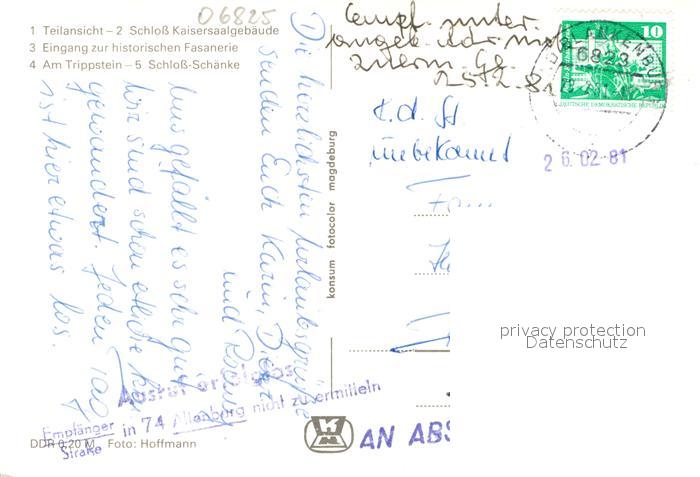 06825
1 Teilansicht – 2 Schloß Kaisersaalgebäude
3 Eingang zur historischen Fasanerie
4 Am Trippstein – 5 Schloß-Schänke
Die herzlichsten Urlaubsgrüße
senden Euch Karin, Dieter
und
Uns gefällt es sehr gut
wir sind schon etliche km
gewandert. Jeden Tag
ist hier etwas los.
konsum fotocolor magdeburg
Empf. unter
angeb. Adr. nicht
zu erm.
25.2.81
z. d. St
unbekannt
10
DEUTSCHE DEMOKRATISCHE REPUBLIK
6823
26.02.81
privacy protection
Datenschutz
erfolglos
Empfänger in 74 Altenburg nicht zu ermitteln
Straße
AN ABS
DDR 0,20 M Foto: Hoffmann